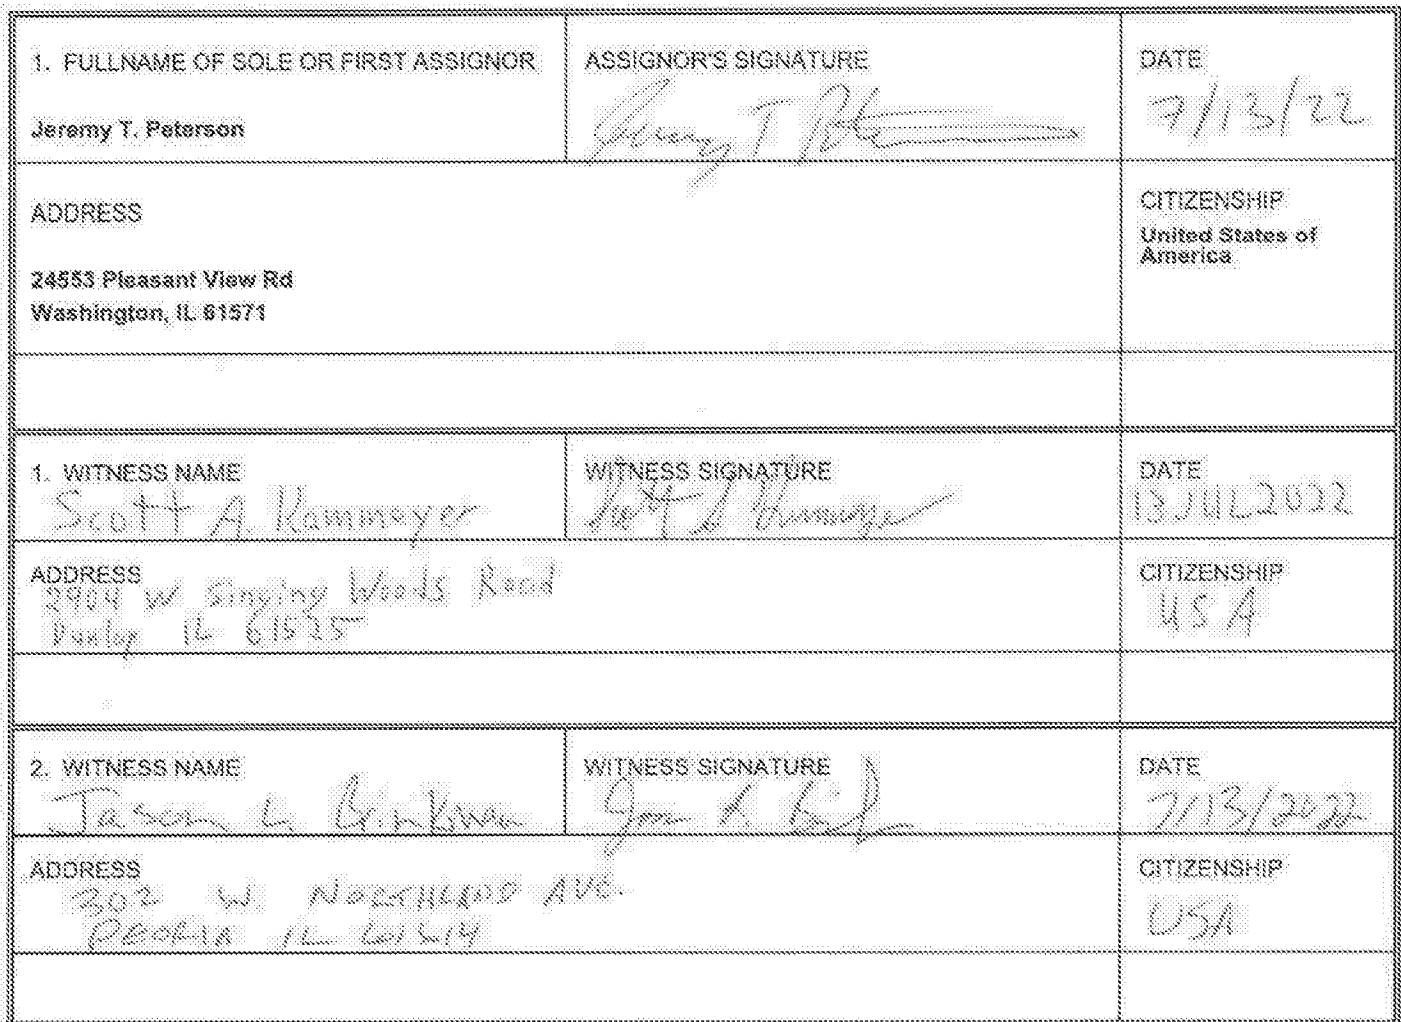 1. FULLNAME OF SOLE OR FIRST ASSIGNOR
Jeremy T. Peterson
ASSIGNOR'S SIGNATURE
DATE
7/13/22
ADDRESS
24553 Pleasant View Rd
Washington, IL 61571
CITIZENSHIP
United States of
America
1. WITNESS NAME
Scott A. Kammeyer
WITNESS SIGNATURE
DATE
13 JUL 2022
ADDRESS
2904 W Singing Woods Road
Dunlap IL 61525
CITIZENSHIP
USA
2. WITNESS NAME
Jason L. Brinkman
WITNESS SIGNATURE
DATE
7/13/2022
ADDRESS
302 W. NORTHLAND AVE.
PEORIA IL 61614
CITIZENSHIP
USA